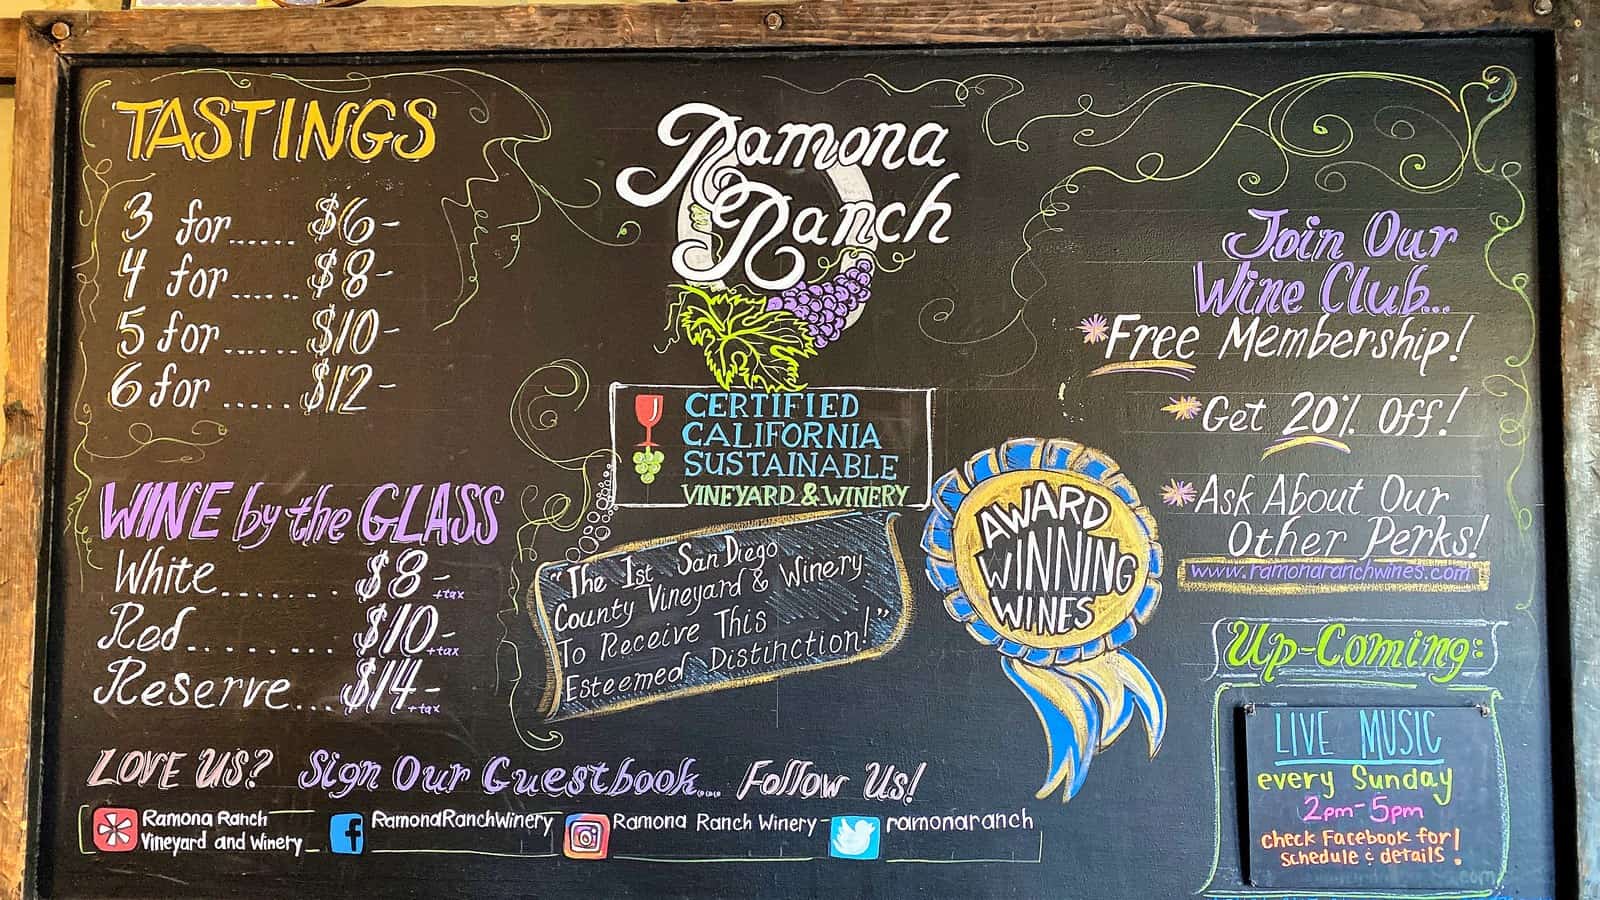 TASTINGS
3 for...... $6-
4 for...... $8-
5 for...... $10-
6 for...... $12-
WINE by the GLASS
White........ $8- +tax
Red......... $10- +tax
Reserve... $14- +tax
Ramona
Ranch
CERTIFIED
CALIFORNIA
SUSTAINABLE
VINEYARD & WINERY
"The 1st San Diego
County Vineyard & Winery
To Receive This
Esteemed Distinction!"
AWARD
WINNING
WINES
Join Our
Wine Club...
*Free Membership!
*Get 20% Off!
*Ask About Our
Other Perks!
www.ramonaranchwines.com
Up-Coming:
LIVE MUSIC
every Sunday
2pm-5pm
check Facebook for
schedule & details!
LOVE US? Sign Our Guestbook... Follow Us!
Ramona Ranch
Vineyard and Winery
RamonaRanchWinery
Ramona Ranch Winery
ramonaranch